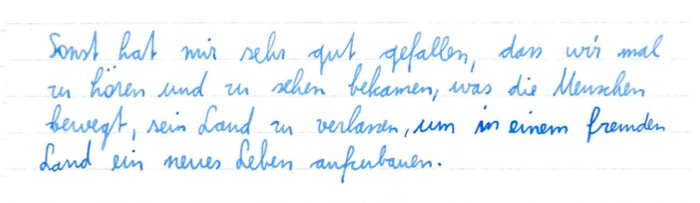 Sonst hat mir sehr gut gefallen, dass wir mal
zu hören und zu sehen bekamen, was die Menschen
bewegt, sein Land zu verlassen, um in einem fremden
Land ein neues Leben aufzubauen.